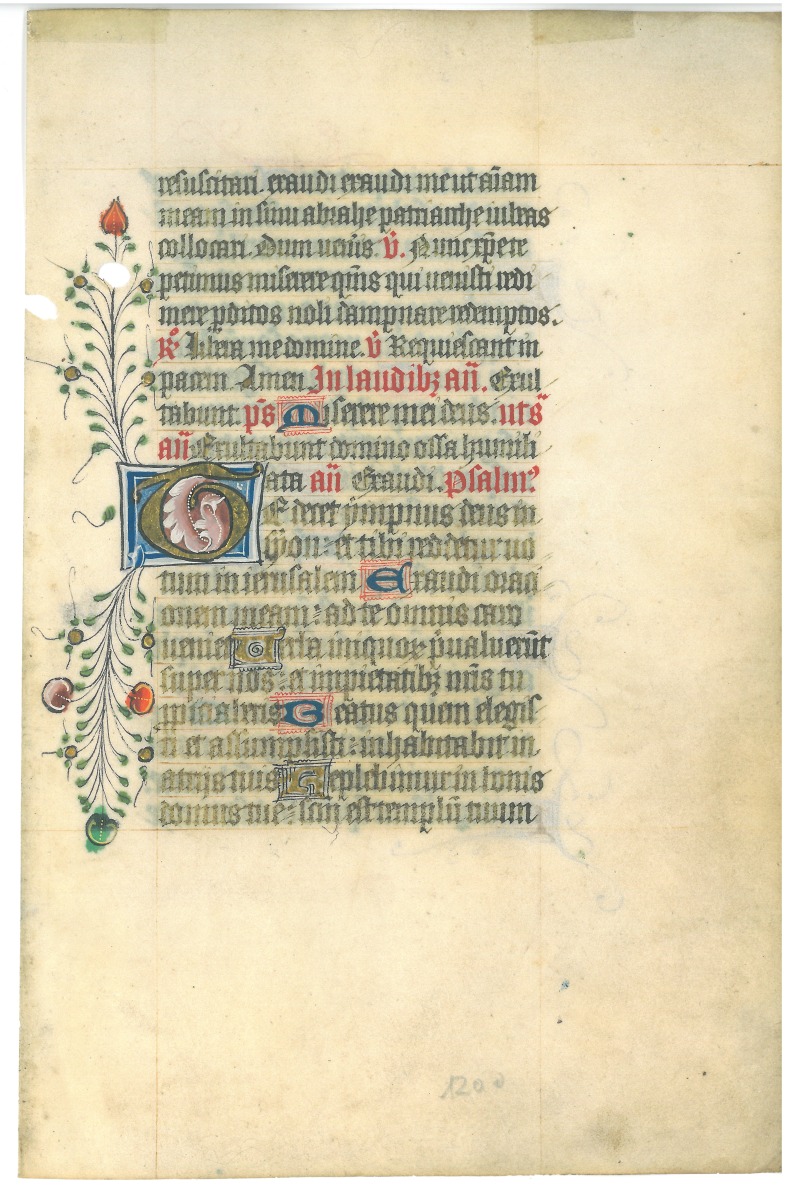 resuscitari. exaudi exaudi me ut aīam
meam in sinu abrahe patriarche iubeas
collocari. Dum uen͛is v̇. Nunc xp̄e te
petimus miserere qs̄ qui uenisti redi
mere pditos noli dampnare redemptos.
R̊ Libera me domine. v̇ Requiescant in
pacem Amen In laudibȝ an̄. Exul
tabunt. ps̄ Miserere mei deus. ut s͛
an̄ Exultabunt domino ossa humili
ata an̄ Exaudi. Psalm9
TE decet ympnus deus in
syon: et tibi reddetur uo
tum in ierusalem Exaudi oraci
onem meam: ad te omnis caro
ueniet Uerba iniquoꝝ p̄ualuerūt
super nos: et impietatibȝ nr̄is tu
ppiciaberis Beatus quem elegis
ti et assumpsisti: inhabitabit in
atrijs tuis Replebimur in bonis
domus tue: scm̄ est templū tuum
1200